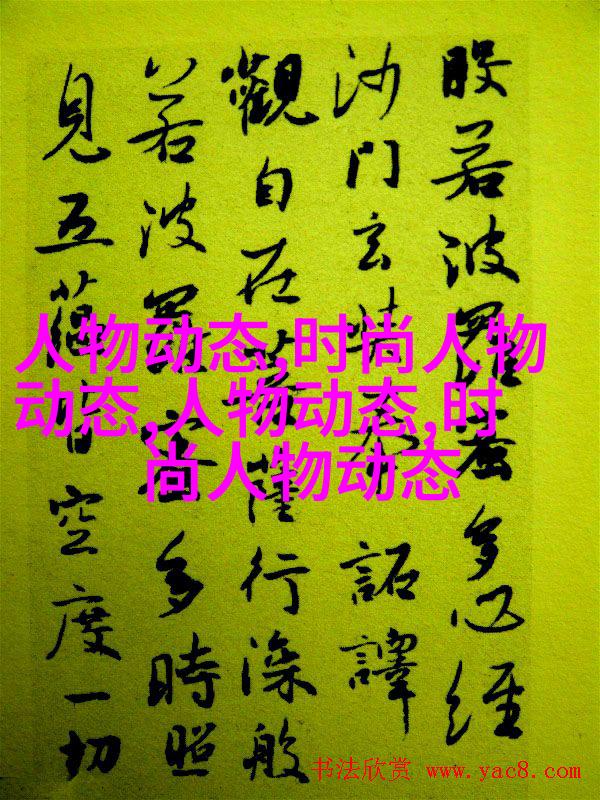 般若波羅蜜多心經
沙門玄奘奉 詔譯
觀自在菩薩行深般
若波羅蜜多時照
見五蘊皆空度一切
人物动态,时尚人物
动态,人物动态,时
尚人物动态
书法欣赏 www.yac8.com